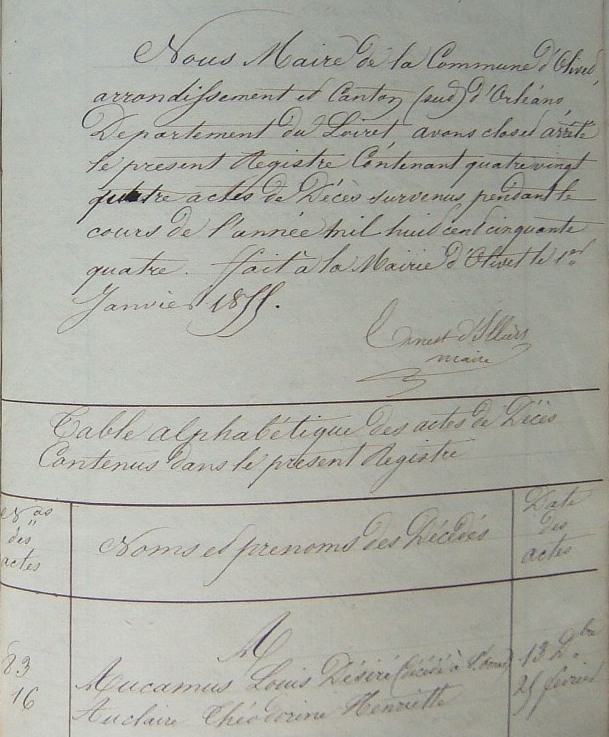 Nous Maire de la Commune d'Olivet,
arrondissement et Canton (sud) d'Orléans,
Departement du Loiret, avons clos et arrêté
le present Registre Contenant quatre vingt
quatre actes de Décès survenus pendant le
cours de l'année mil huit cent cinquante
quatre. fait à la Mairie d'Olivet le 1er
Janvier 1855.
Ernest d'Illiers
maire
Table alphabétique des actes de Décès
Contenus dans le présent Registre
Nos des actes
Noms et prenoms des Décédés
Date des actes
A
83 Aucamus Louis Désiré (décédé à 13 Xbre
16 Auclaire Théodorine Henriette 25 février